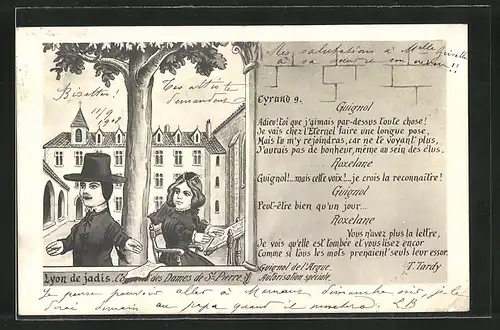 Mes salutations à Melle
à sa
Bisettes!
11/9
1908
Cyrano 9.
Guignol
Adieu! toi que j'aimais par-dessus toute chose!
Je vais chez l'Eternel faire une longue pose,
Mais tu m'y rejoindras, car ne te voyant plus,
J'aurais pas de bonheur, même au sein des élus.
Roxelane
Guignol!.. mais cette voix!.. je crois la reconnaître!
Guignol
Peut-être bien qu'un jour...
Roxelane
Vous n'avez plus la lettre,
Je vois qu'elle est tombée et vous lisez encor
Comme si tous les mots prenaient seuls leur essor.
Guignol de l'Argue
Autorisation spéciale.
T. Tardy
Lyon de jadis. Couvent des Dames de St-Pierre.
Je pense pouvoir aller à Mornant dimanche soir, je le
dirai demain au papa quand il LB